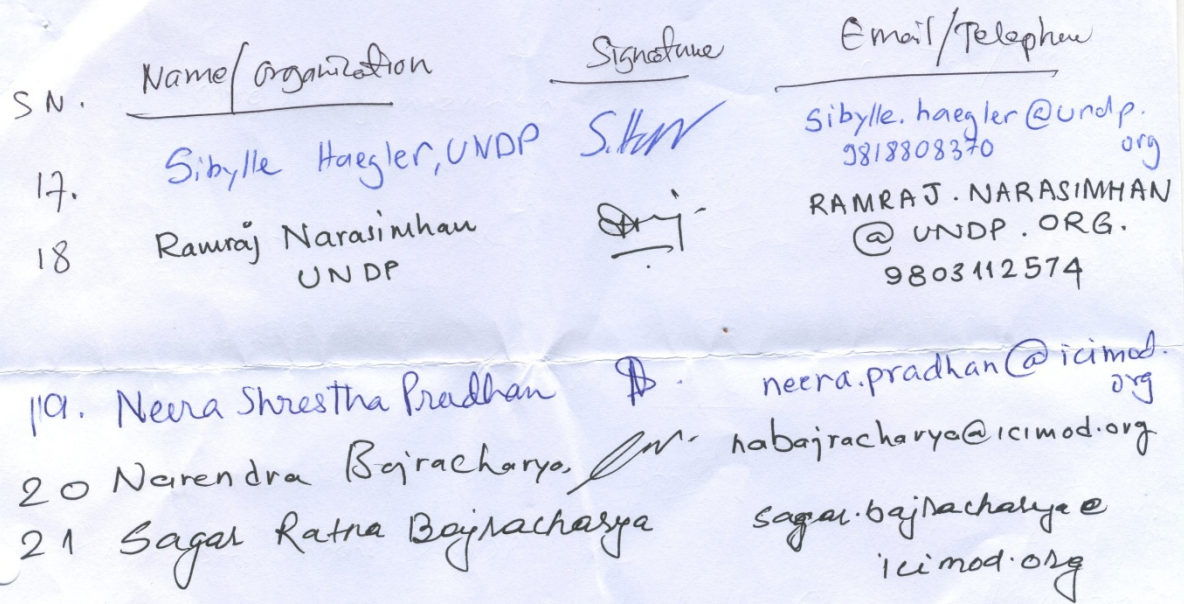 SN. Name/Organization Signature Email/Telephone
17. Sibylle Haegler, UNDP sibylle.haegler@undp.org
9818808370
18 Ramraj Narasimhan RAMRAJ.NARASIMHAN
UNDP @ UNDP.ORG.
9803112574
19. Neera Shrestha Pradhan neera.pradhan@icimod.org
20 Narendra Bajracharya, nabajracharya@icimod.org
21 Sagar Ratna Bajracharya sagar.bajracharya@
icimod.org